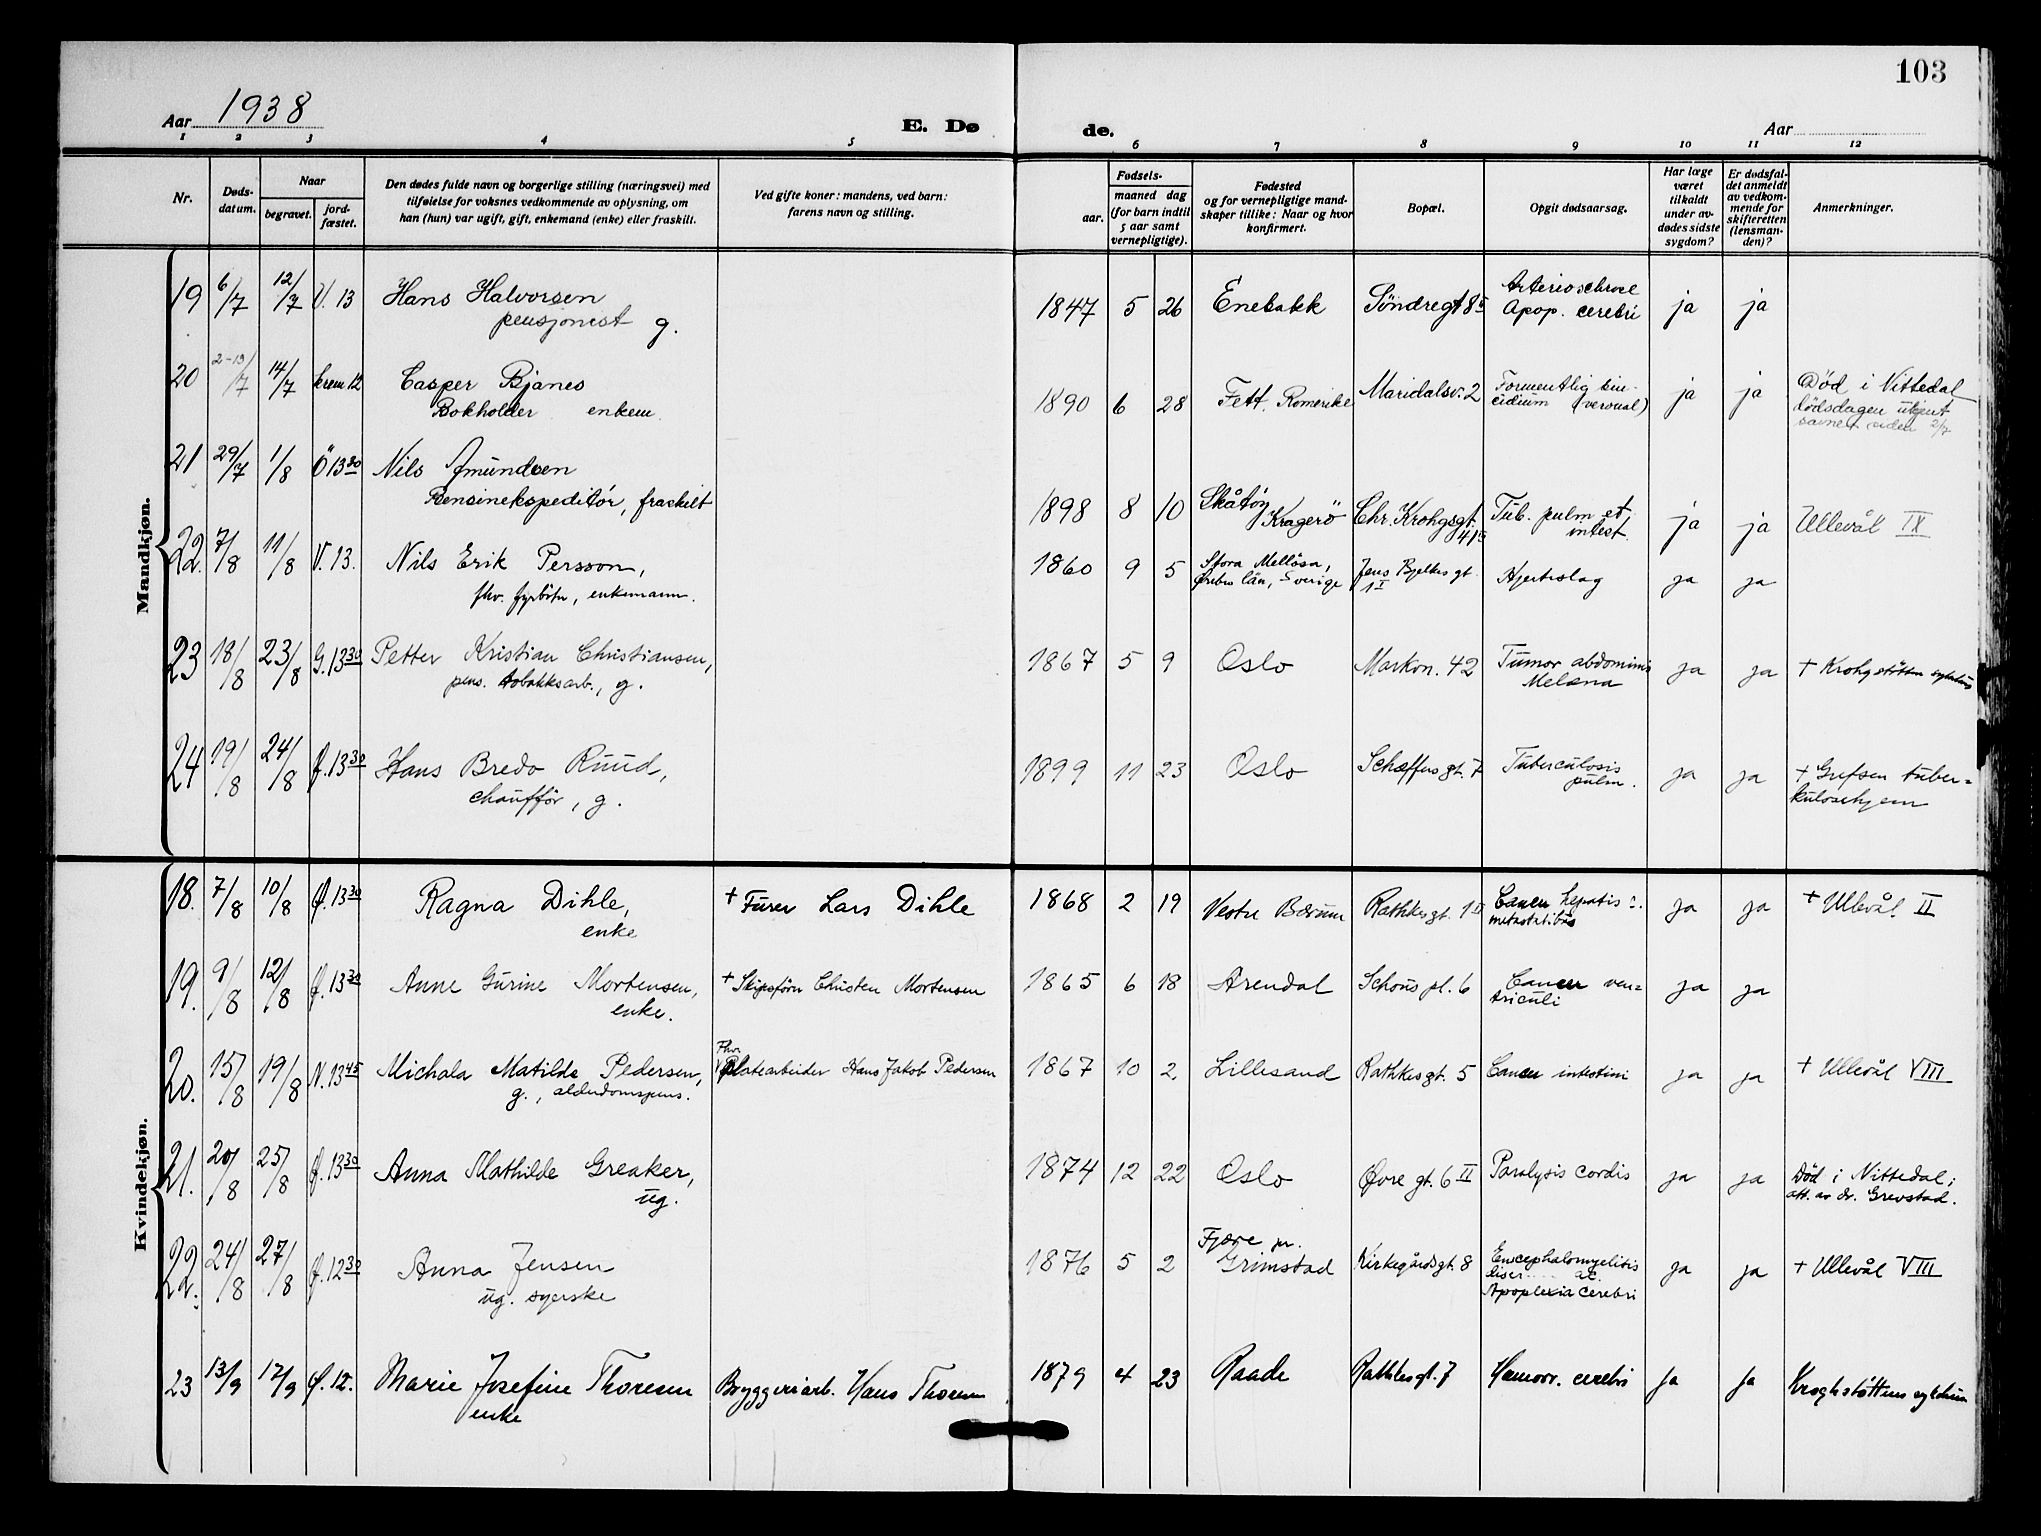 103
Aar 1938
E. Dø
de.
Aar
1 2 3 4 5 6 7 8 9 10 11 12
Nr.
Døds-
datum.
Naar
begravet.
jord-
fæstet.
Den dødes fulde navn og borgerlige stilling (næringsvei) med
tilføielse for voksnes vedkommende av oplysning, om
han (hun) var ugift, gift, enkemand (enke) eller fraskilt.
Ved gifte koner: mandens, ved barn:
farens navn og stilling.
Fødsels-
aar.
maaned dag
(for barn indtil
5 aar samt
vernepligtige).
Fødested
og for vernepligtige mand-
skaper tillike: Naar og hvor
konfirmert.
Bopæl.
Opgit dødsaarsag.
Har læge
været
tilkaldt
under av-
dødes sidste
sygdom?
Er dødsfal-
det anmeldt
av vedkom-
mende for
skifteretten
(lensman-
den)?
Anmerkninger.
Mandkjøn.
19 6/7 12/7 V. 13 Hans Halvorsen 1847 5 26 Enebakk Söndregt 8 Arteriosclerose
pensjonist g. Apop. cerebri ja ja
20 2-13/7 14/7 krem 12 Casper Bjanes 1890 6 28 Fett. Romerike Maridalsv. 2 Formentlig sui-
Bokholder enkem. cidium (veronal) ja ja Död i Nittedal
dödsdagen ukjent
savnet siden 2/7
21 29/7 1/8 Ö 13 30 Nils Amundsen
Bensinekspeditör, fraskilt 1898 8 10 Skåtöy
Kragerö Chr. Krohgsgt. 41 Tub. pulm et
intest. ja ja Ullevål IX
22. 7/8 11/8 V. 13. Nils Erik Persson, 1860 9 5 Stora Mellösa,
Örebro län, Sverige Jens Bjelkes gt.
1 I Hjerteslag ja ja
fhv. fyrböter, enkemann.
23 18/8 23/8 G. 13 30 Petter Kristian Christiansen, 1867 5 9 Oslo Markvn. 42 Tumor abdominis
pens. tobakksarb., g. Melæna ja ja + Krohgstötten sykehus
24 19/8 24/8 Ø. 13 30 Hans Bredo Ruud, 1899 11 23 Oslo Schæffers gt. 7 Tuberculosis
chauffør, g. pulm. ja ja + Grefsen tuber=
kulosehjem
Kvindekjøn.
18. 7/8 10/8 Ø. 13 30 Ragna Dihle, + Furer Lars Dihle 1868 2 19 Vestre Bærum Rathkes gt. 1 II Cancer hepatis
enke metastatibus ja ja + Ullevål II
19. 9/8 12/8 Ø. 13 30 Anne Gurine Mortensen, + Skipsförer Christen Mortensen 1865 6 18 Arendal Schous pl. 6 Cancer ven=
enke. triculi ja ja
20. 15/8 19/8 N. 13 45 Michala Matilde Pedersen, Fhv.
Platearbeider Hans Jakob Pedersen 1867 10 2 Lillesand Rathkes gt. 5 Cancer intestini ja ja + Ullevål VIII
g., alderdomspens.
21. 20/8 25/8 Ø. 13 30 Anna Mathilde Greaker, 1874 12 22 Oslo Øvre gt. 6 II Paralysis cordis ja ja Död i Nittedal;
ug. att. av dr. Grevstad.
22. 24/8 27/8 Ø. 12 30 Anna Jensen 1876 5 2 Fjære pr.
Grimstad Kirkegårdsgt. 8 Encephalomyelitis
ug. syerske Apoplexia cerebri ja ja + Ullevål VIII
23 13/9 17/9 Ø. 12. Marie Josefine Thoresen Bryggeriarb. Hans Thoresen 1879 4 23 Raade Rathkesgt. 7 Hæmorr. cerebri ja ja Kroghstöttens sykehus
enke